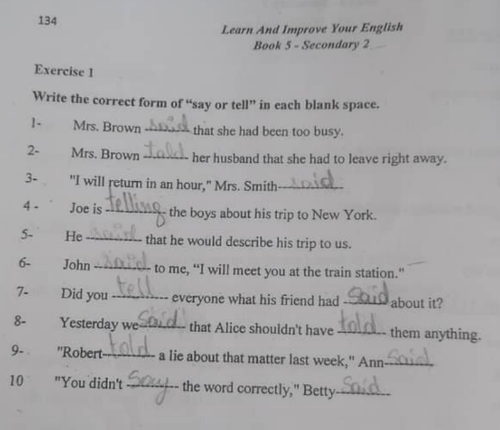 134
Learn And Improve Your English
Book 5 - Secondary 2
Exercise 1
Write the correct form of "say or tell" in each blank space.
1- Mrs. Brown said that she had been too busy.
2- Mrs. Brown told her husband that she had to leave right away.
3- "I will return in an hour," Mrs. Smith said
4 - Joe is telling the boys about his trip to New York.
5- He said that he would describe his trip to us.
6- John said to me, "I will meet you at the train station."
7- Did you tell everyone what his friend had said about it?
8- Yesterday we said that Alice shouldn't have told them anything.
9- "Robert told a lie about that matter last week," Ann said
10 "You didn't say the word correctly," Betty said